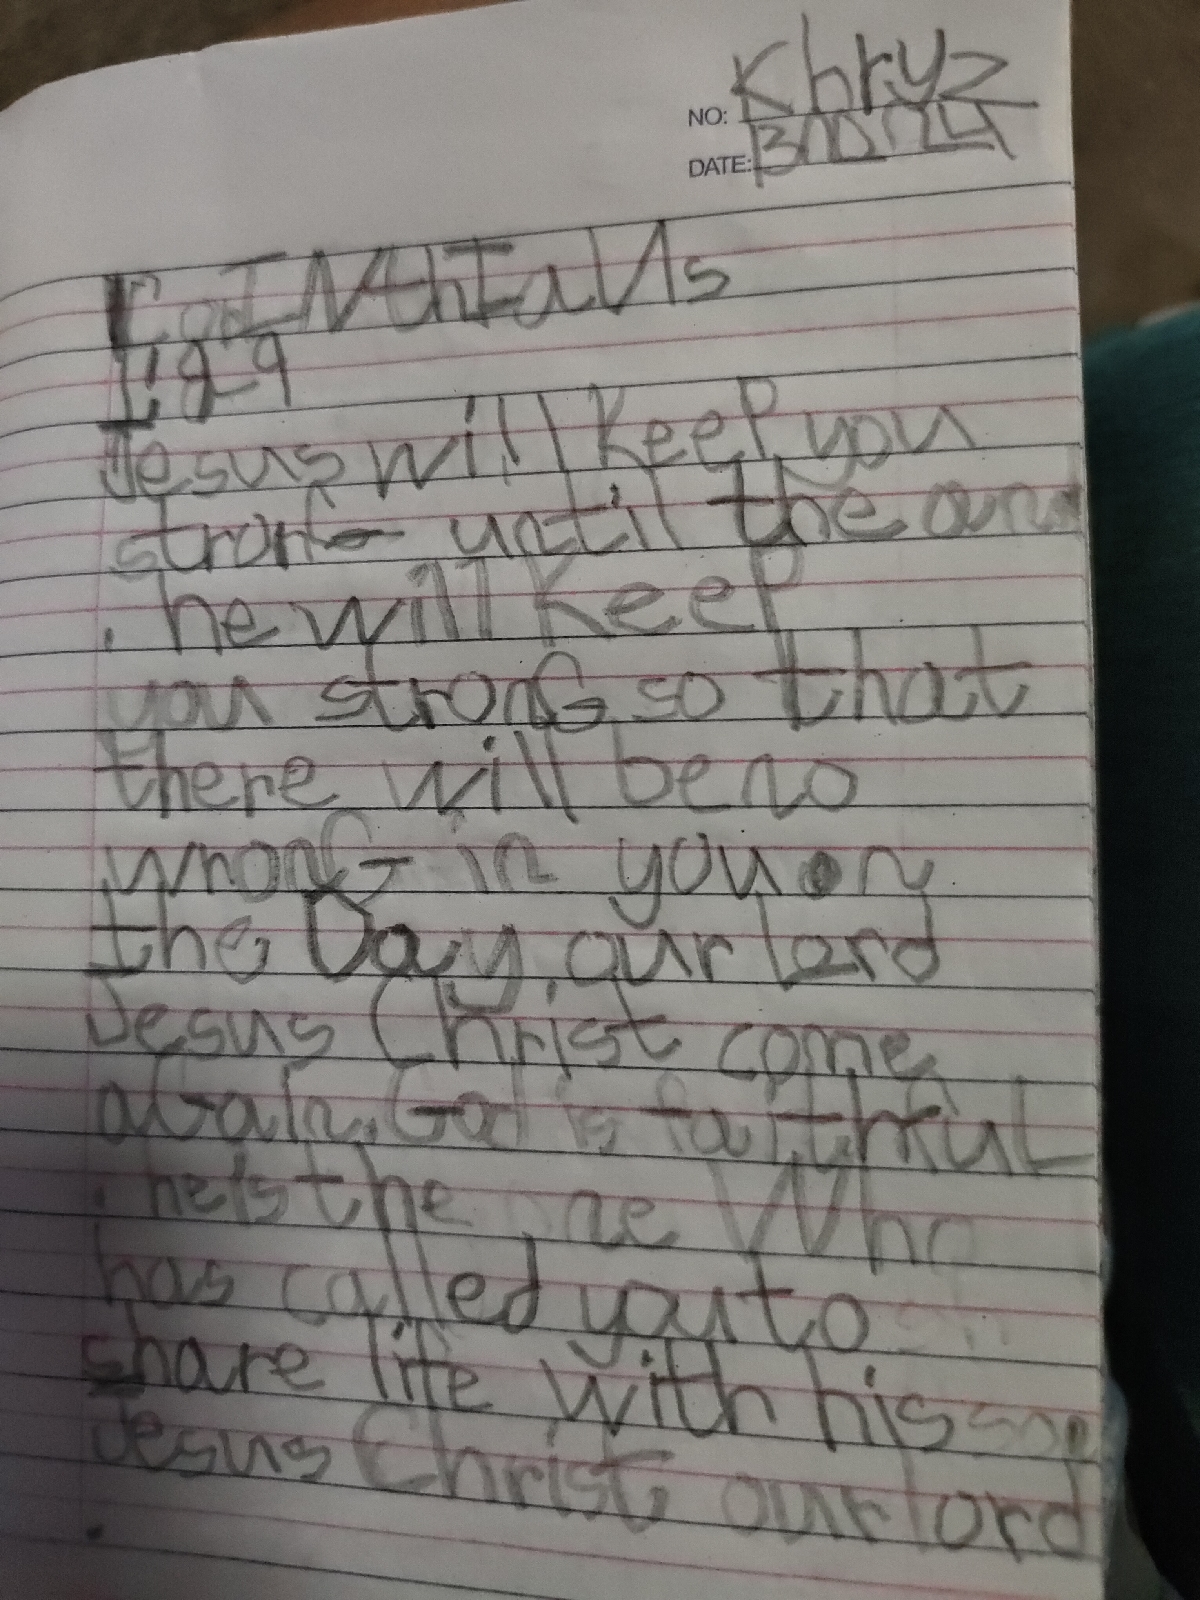 NO: Khryz
DATE:
CorINthIaNs
1:8-9
Jesus will KeeP you
stronG until the
. he will KeeP
you stronG so that
there will be no
wronG in you on
the Day our lord
Jesus Christ come
aGain. God is faithful
. he is the one Who
has called you to
share life with his son
Jesus Christ our lord
.